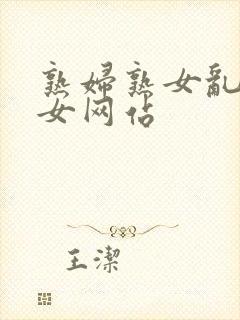 熟婦熟女亂
女网佔
王潔